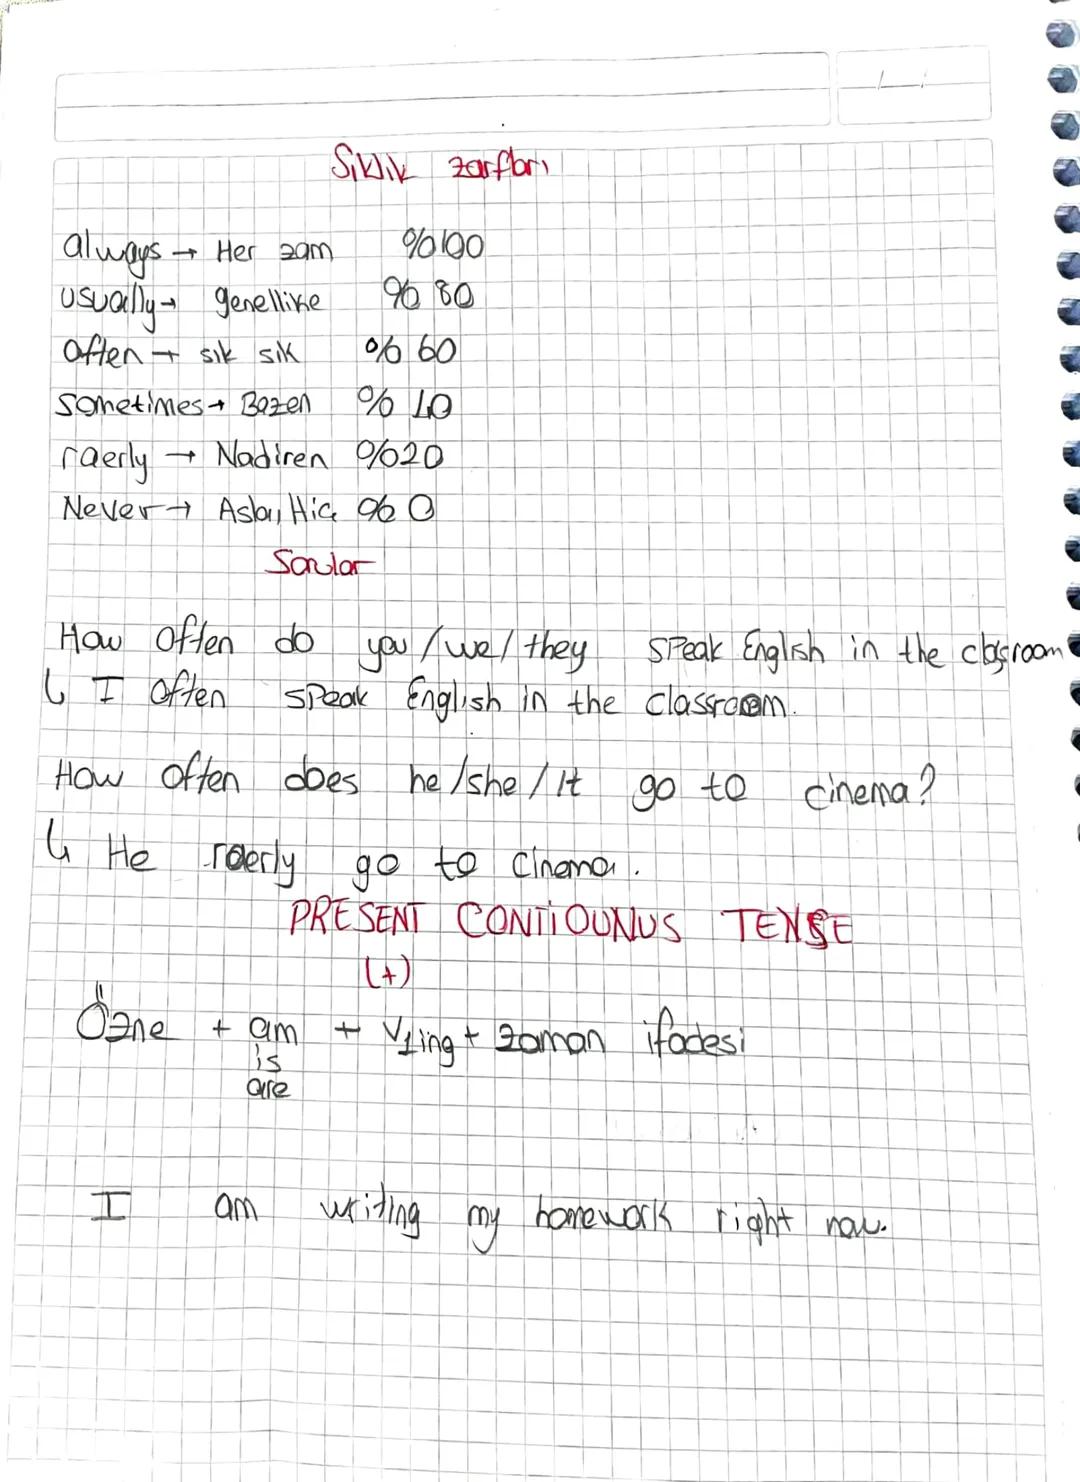 Sıklık zarfları
always → Her zam %100
usually → genellike % 80
Often → sık sık % 60
Sometimes → Bazen % 40
raerly → Nadiren %20
Never → Asla, Hiç % 0
Sorular
How Often do you / we / they speak English in the classroom
↳ I Often speak English in the classroom.
How often does he /she / It go to cinema?
↳ He raerly go to cinema.
PRESENT CONTİOUNUS TENSE
(+)
Özne + am + V1ing + zaman ifadesi
is
are
I am writing my homework right now.